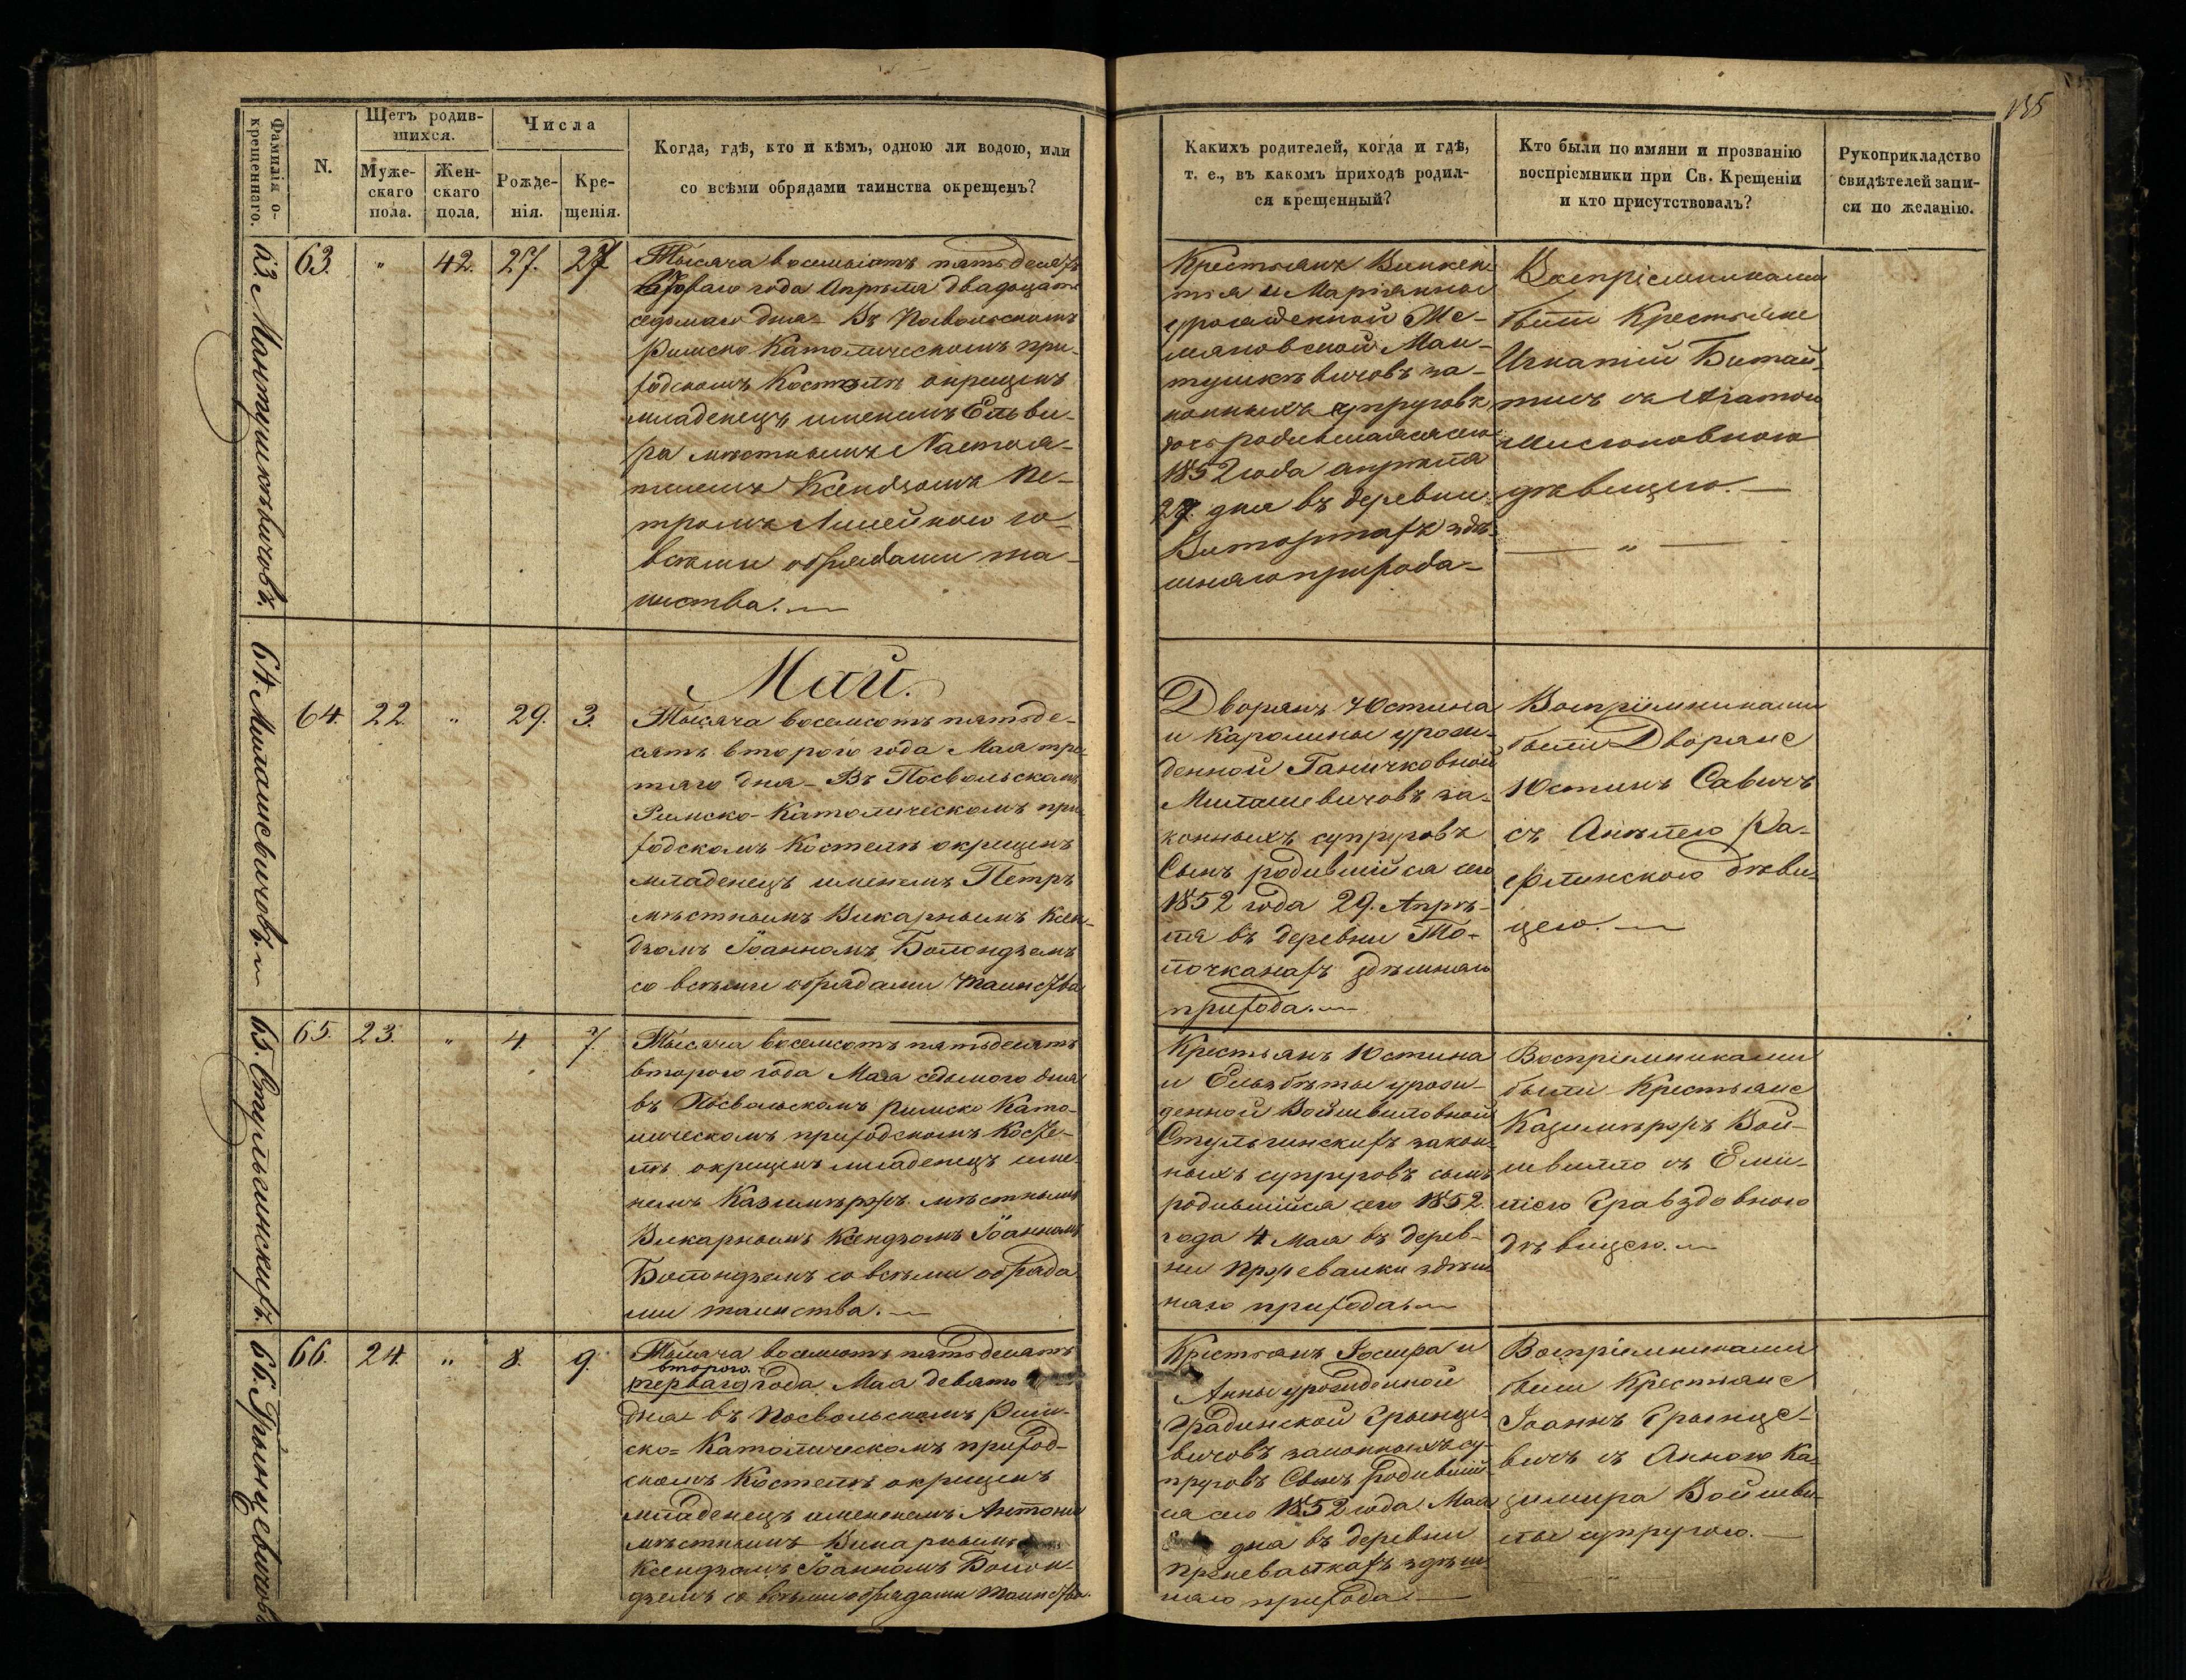 135
Фамилія о-
крещеннаго.
N.
Щетъ родив-
шихся.
Муже-
скаго
пола.
Жен-
скаго
пола.
Числа
Рожде-
нія.
Кре-
щенія.
Когда, гдѣ, кто и кѣмъ, одною ли водою, или
со всѣми обрядами таинства окрещенъ?
Какихъ родителей, когда и гдѣ,
т. е., въ какомъ приходѣ родил-
ся крещенный?
Кто были по имяни и прозванію
воспріемники при Св. Крещеніи
и кто присутствовалъ?
Рукоприкладство
свидѣтелей запи-
си по желанію.
63. Мантушкѣвичовъ.
63.
"
42.
27.
27
Тысяча восемьсотъ пятьдесятъ
года Апрѣля двадцать
седьмаго дня – Въ Посвольскомъ
Римско Католическомъ при-
ходскомъ Костелѣ окрещенъ
младенецъ именемъ Ельви-
ра мѣстнымъ Настоя-
телемъ Ксендзомъ Пе-
тромъ со
всѣми обрядами та-
инства.
Крестьянъ Викен-
тія и Маріянны
урожденной
Ман-
тушкѣвичовъ за-
конныхъ супруговъ
дочь родившаяся сего
1852 года апрѣля
27. дня въ деревни
здѣ-
шняго прихода –
Воспріемниками
были Крестьяне
Игнатій Битай-
тисъ съ Агатою
дѣвицею. —
— " —
Май.
64. Милашевичовъ.
64.
22.
"
29.
3.
Тысяча восемсотъ пятьде-
сятъ второго года Мая тре-
тяго дня – Въ Посвольскомъ
Римско-Католическомъ при-
ходскомъ Костелѣ окрещенъ
младенецъ именемъ Петръ
мѣстнымъ Викарнымъ Ксен-
дзомъ Іоанномъ Болондземъ
со всѣми обрядами таинства
Дворянъ Юстина
и Каролины урож-
денной Ганичковной
Милашевичовъ за-
конныхъ супруговъ
Сынъ родившійся сего
1852 года 29. Апрѣ-
ля въ деревни То-
лочканахъ здѣшняго
прихода.
Воспріемниками
были Дворяне
Юстинъ Савичъ
съ Анѣлею Ра-
дѣви-
цею.
65. Стульгинскихъ.
65.
23.
"
4.
7.
Тысяча восемсотъ пятьдесятъ
второго года Мая седьмого дня
въ Посвольскомъ Римско Като-
лическомъ приходскомъ Косте-
лѣ окрещенъ младенецъ име-
немъ Казимѣръ мѣстнымъ
Викарнымъ Ксендзомъ Іоанномъ
Болондземъ со всѣми обряда-
ми таинства.
Крестьянъ Юстина
и Ельзбѣты урож-
денной Войшвиловной
Стульгинскихъ закон-
ныхъ супруговъ сынъ
родившійся сего 1852.
года 4 Мая въ дерев-
ни здѣш-
няго прихода.
Воспріемниками
были Крестьяне
Казимѣръ Вой-
швилло съ Еми-
ліею Гравздовною
дѣвицею.
66. Грынцевичовъ
66.
24.
"
8.
9.
Тысяча восемсотъ пятьдесятъ
второго
перваго года Мая девято
дня въ Посвольскомъ Рим-
ско-Католическомъ приход-
скомъ Костелѣ окрещенъ
младенецъ именемъ Антони
мѣстнымъ Викарнымъ
Ксендзомъ Іоанномъ Болон-
дземъ со всѣми обрядами таинства.
Крестьянъ Іосифа и
Анны урожденной
Градинской Грынце-
вичовъ законныхъ су-
пруговъ Сынъ родивший-
ся сего 1852 года Мая
дня въ деревни
здѣш-
няго прихода —
Воспріемниками
были Крестьяне
Іоаннъ Грынце-
вичъ съ Анною Ка-
зимира Войшви-
лы супругою. —